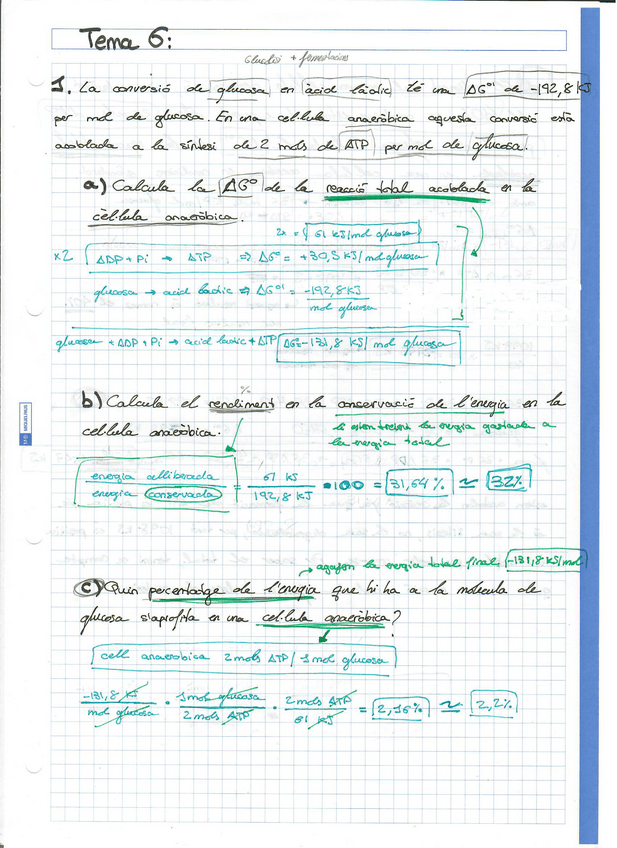 Tema 6:
Glucòlisi + fermentacions
1. La conversió de glucosa en àcid làctic té una ΔG°' de -192,8 KJ
per mol de glucosa. En una cel·lula anaeròbica aquesta conversió està
acoblada a la síntesi de 2 mols de ATP per mol de glucosa.
a) Calcula la ΔG° de la reacció total acoblada en la
cèl·lula anaeròbica.
2x = 61 KJ/mol glucosa
x2 ADP + Pi → ATP ⇒ ΔG° = +30,5 KJ/mol glucosa
glucosa → acid làctic ⇒ ΔG°' = -192,8 KJ
mol glucosa
glucosa + ADP + Pi → acid làctic + ATP ΔG°= -131,8 KJ/mol glucosa
%
b) Calcula el rendiment en la conservació de l'energia en la
cel·lula anaeròbica.
li estem treient la energia gastada a
la energia total
energia alliberada = 61 KJ · 100 = 31,64% ≃ 32%
energia conservada 192,8 KJ
→ agafem la energia total final (-131,8 KJ/mol)
c) Quin percentatge de l'energia que hi ha a la molecula de
glucosa s'aprofita en una cel·lula anaeròbica?
cell anaerobica 2 mols ATP / 1 mol glucosa
-131,8 KJ · 1 mol glucosa · 2 mols ATP = 2,16% ≃ 2,2%
mol glucosa 2 mols ATP 61 KJ